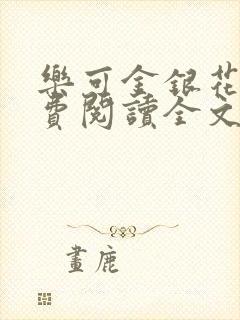 樂可金銀花
費閱讀全文
畫鹿